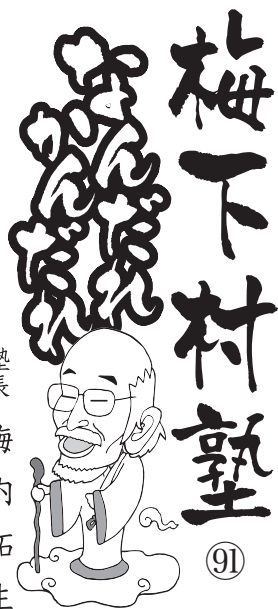 梅下村塾
91
なんだれ
かんだれ
塾長 梅内拓生